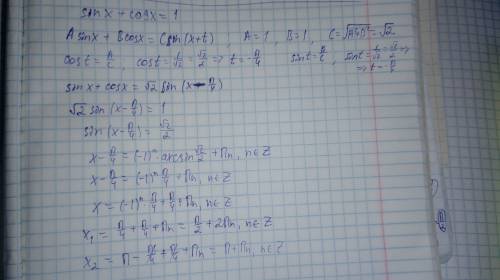 sinx + cosx = 1
A sinx + B cosx = C sin(x+t), A=1, B=1, C=√A²+B² = √2
cost = A/C, cost = 1/√2 = √2/2 => t = -π/4 sint = B/C, sint = 1/√2 = √2/2 =>
=> t - π/4
sinx + cosx = √2 sin(x - π/4)
√2 sin(x - π/4) = 1
sin(x - π/4) = √2/2
x - π/4 = (-1)ⁿ arcsin √2/2 + πn, n∈Z
x - π/4 = (-1)ⁿ π/4 + πn, n∈Z
x = (-1)ⁿ · π/4 + π/4 + πn, n∈Z
x₁ = π/4 + π/4 + πn = π/2 + 2πn, n∈Z
x₂ = π - π/4 + π/4 + πn = π + πn, n∈Z